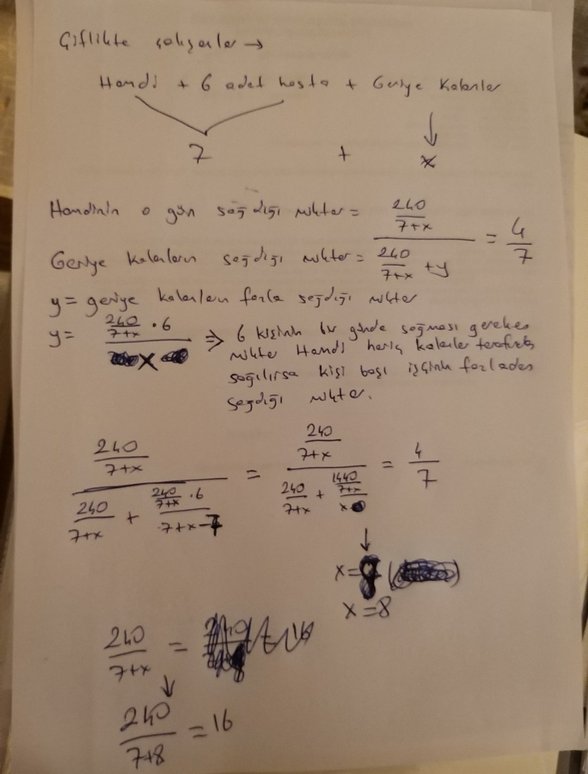 Çiflikte çalışanlar →
Hamdi + 6 adet hasta + Geriye Kalanlar
7 + x
Hamdinin o gün sağdığı miktar = 240/(7+x)
Geriye kalanların sağdığı miktar = 240/(7+x) + y = 4/7
y = geriye kalanların fazla sağdığı miktar
y = (240/(7+x) · 6)/x ⇒ 6 kişinin bir günde sağması gereken
miktar Hamdi hariç kalanlar tarafından
sağılırsa kişi başı işçinin fazladan
sağdığı miktar.
(240/(7+x))/(240/(7+x) + (240/(7+x) · 6)/(7+x-7)) = (240/(7+x))/(240/(7+x) + (1440/(7+x))/x) = 4/7
↓
x =
x = 8
240/(7+x) =
↓
240/(7+8) = 16